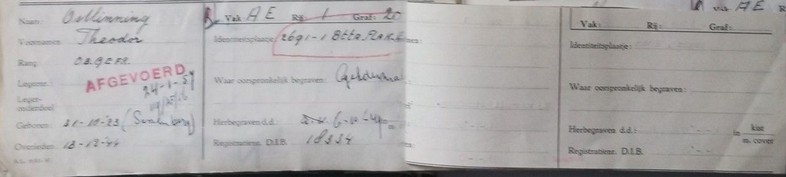 Naam: Ostlinning
Voornamen Theodor
Rang: OBGEFR.
Legernr.:
AFGEVOERD
24-1-57
Leger-
onderdeel
Geboren: 21-10-'23
Overleden: 13-12-'44
Vak: AE Rij: 1 Graf: 20
Identiteitsplaatje:
Waar oorspronkelijk begraven:
Herbegraven d.d.: 6-10-'49
Registratienr. D.I.B. 18334
Vak AE R
Vak: Rij: Graf:
Identiteitsplaatje:
Waar oorspronkelijk begraven:
Herbegraven d.d.: In kist
m. cover
Registratienr. D.I.B.